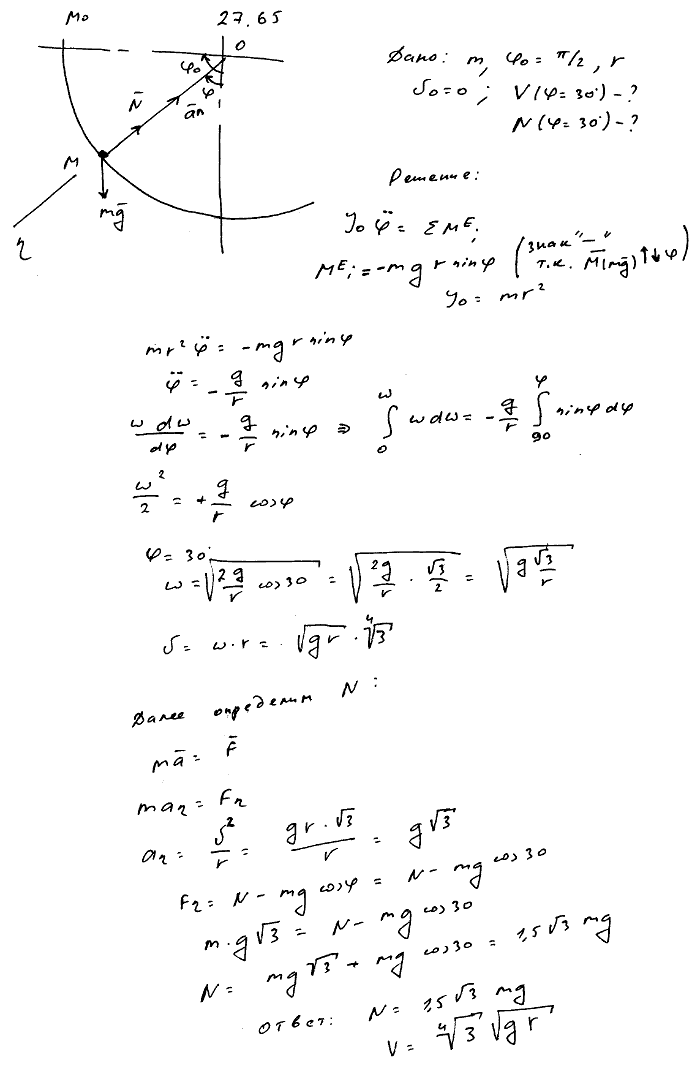 27.65
M₀
O
φ₀
φ
N̄
āₙ
M
mḡ
η
Дано: m, φ₀ = π/2, r
υ₀ = 0; V(φ = 30°) - ?
N(φ = 30°) - ?
Решение:
J₀ φ̈ = Σ Mᴱᵢ
Mᴱᵢ = -mg r sinφ (знак "-" т.к. M̄(mḡ) ↑↓ φ)
J₀ = mr²
mr² φ̈ = -mg r sinφ
φ̈ = - g/r sinφ
ω dω/dφ = - g/r sinφ ⇒ ∫₀^ω ω dω = - g/r ∫₉₀^φ sinφ dφ
ω²/2 = + g/r cosφ
φ = 30°
ω = √(2g/r cos30) = √(2g/r · √3/2) = √(g √3/r)
υ = ω · r = √(gr) · ⁴√3
Далее определим N:
mā = F̄
maη = Fη
aη = υ²/r = gr · √3/r = g√3
Fη = N - mg cosφ = N - mg cos30
m · g√3 = N - mg cos30
N = mg√3 + mg cos30 = 1,5√3 mg
Ответ: N = 1,5√3 mg
V = ⁴√3 √(gr)